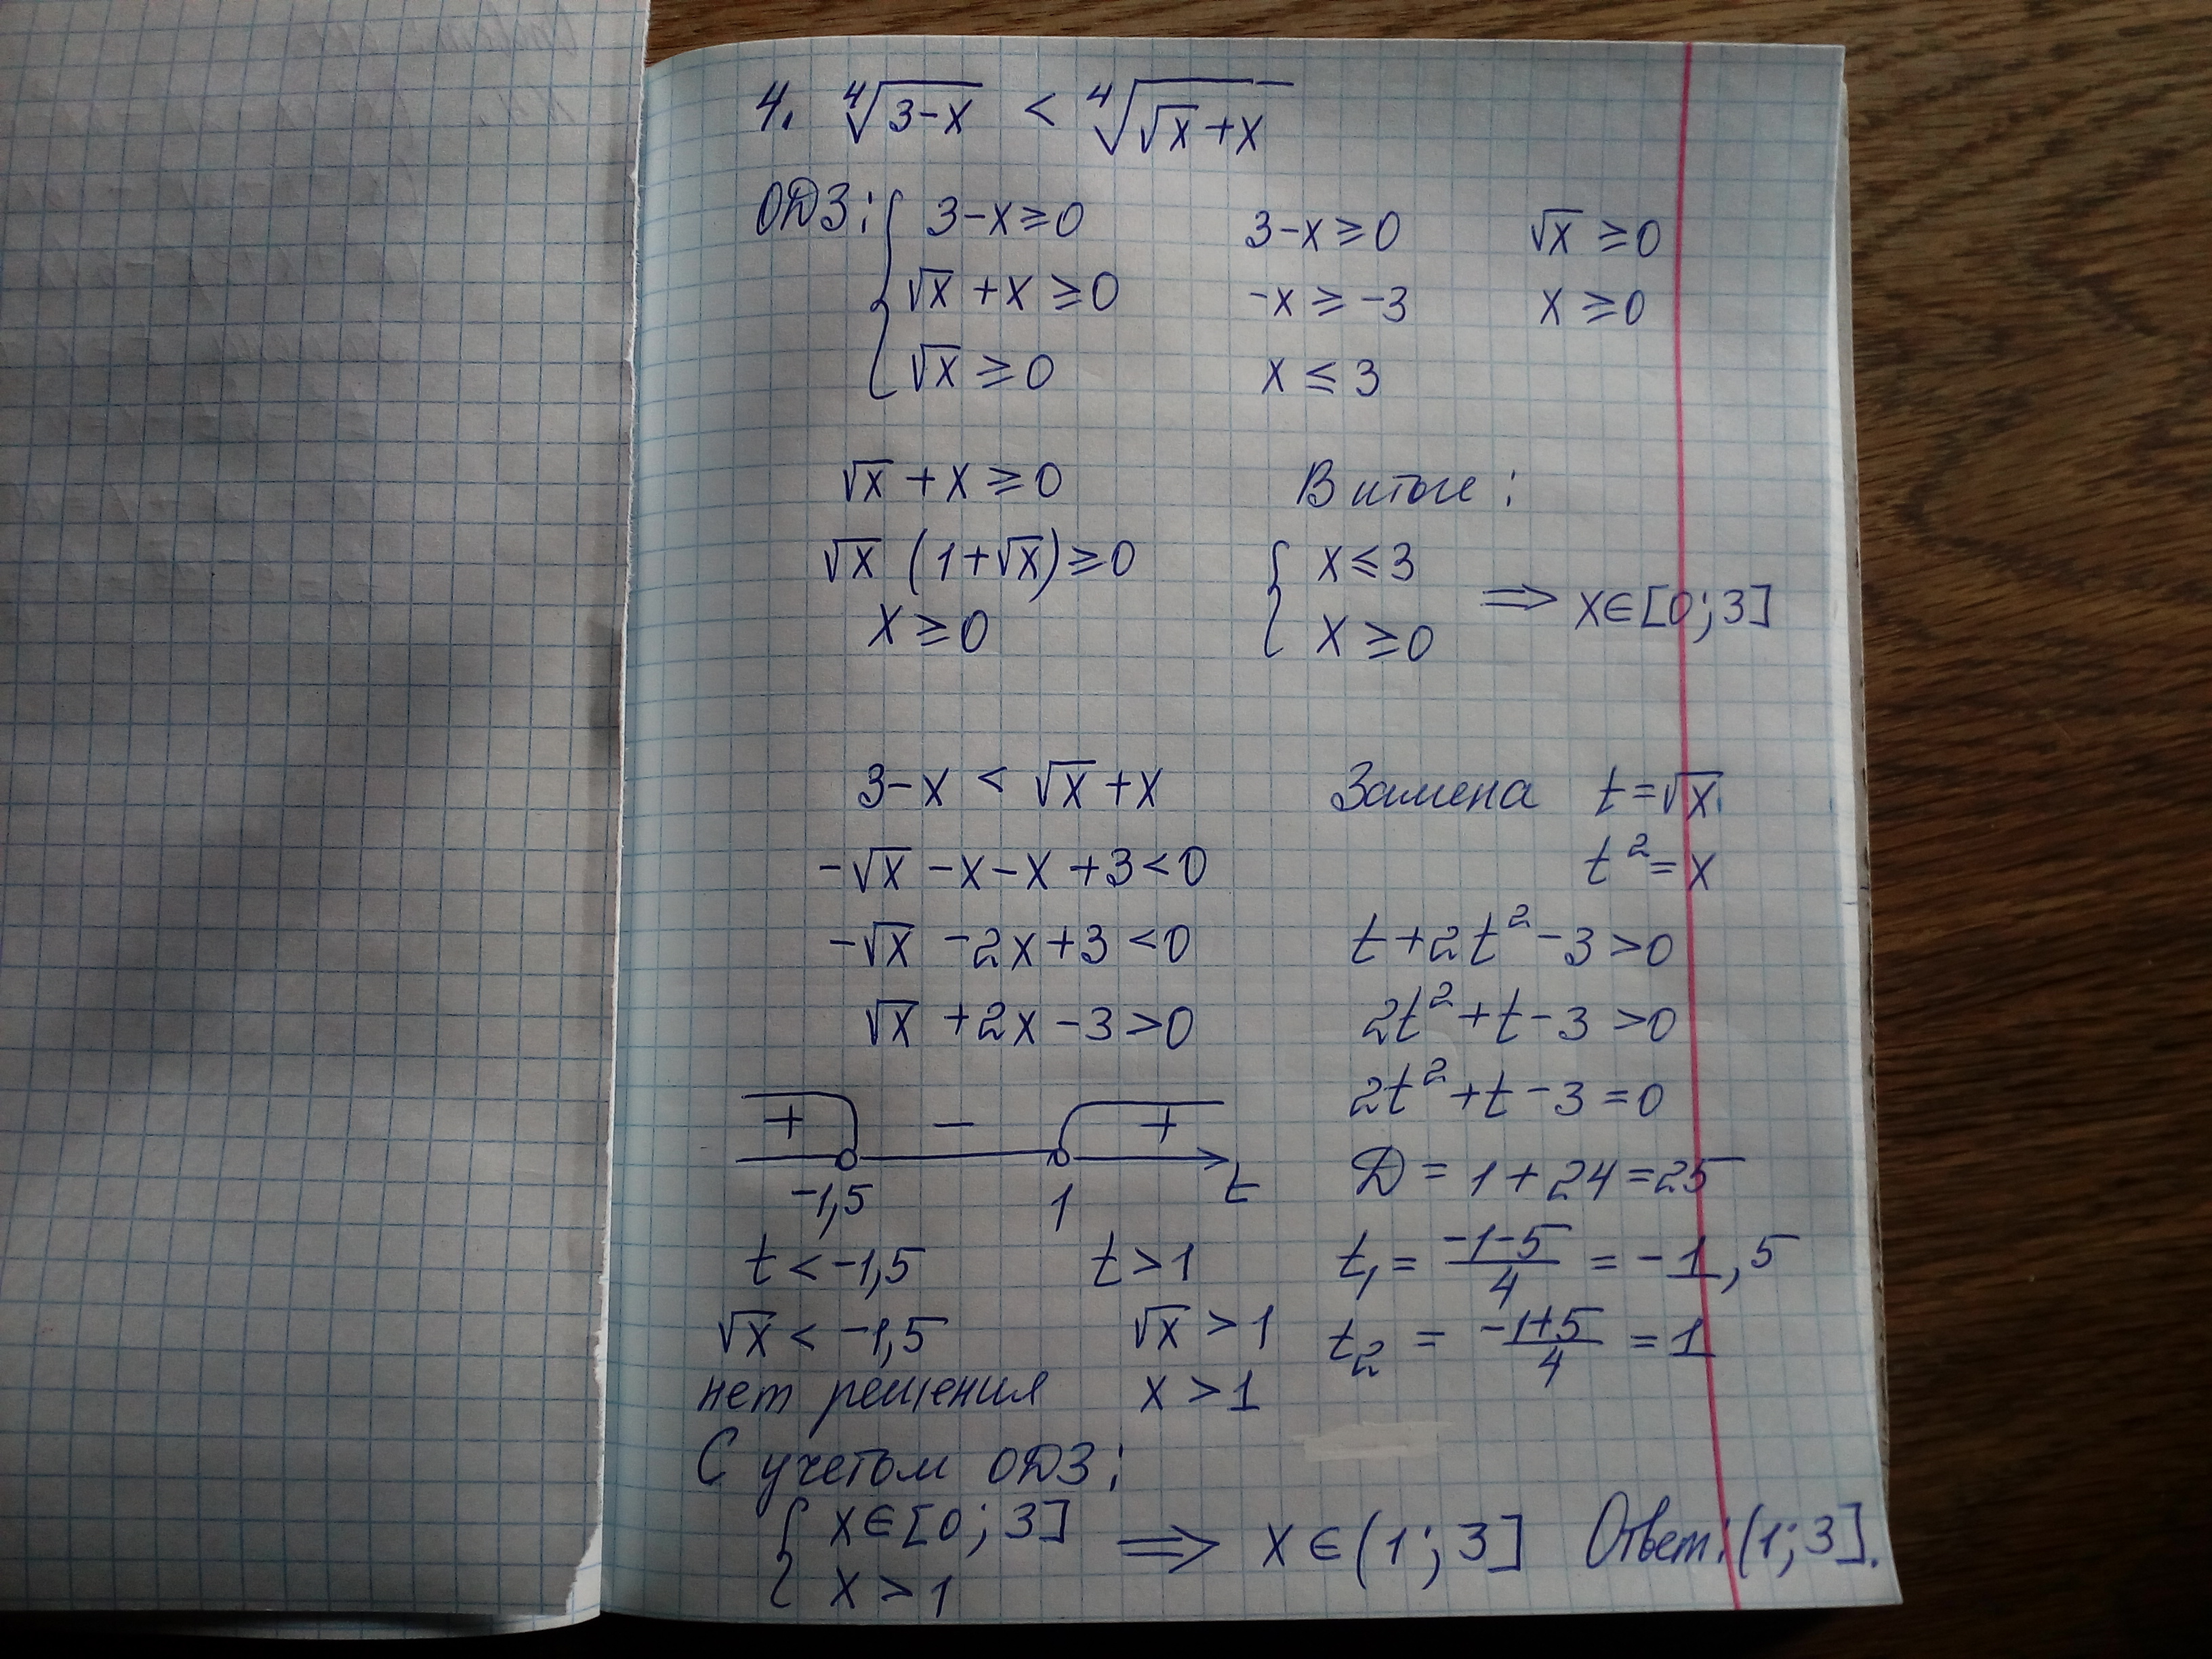 4. ⁴√(3-x) < ⁴√(√x + x)
ОДЗ: { 3-x ≥ 0
√x + x ≥ 0
√x ≥ 0
3-x ≥ 0
-x ≥ -3
x ≤ 3
√x ≥ 0
x ≥ 0
√x + x ≥ 0
√x (1+√x) ≥ 0
x ≥ 0
В итоге:
{ x ≤ 3
x ≥ 0
⇒ x∈[0; 3]
3-x < √x + x
-√x - x - x + 3 < 0
-√x - 2x + 3 < 0
√x + 2x - 3 > 0
Замена t = √x
t² = x
t + 2t² - 3 > 0
2t² + t - 3 > 0
2t² + t - 3 = 0
Д = 1 + 24 = 25
t₁ = (-1-5)/4 = -1,5
t₂ = (-1+5)/4 = 1
+ − +
-1,5 1 t
t < -1,5 t > 1
√x < -1,5 √x > 1
нет решения x > 1
С учетом ОДЗ:
{ x∈[0; 3]
x > 1
⇒ x∈(1; 3] Ответ: (1; 3].